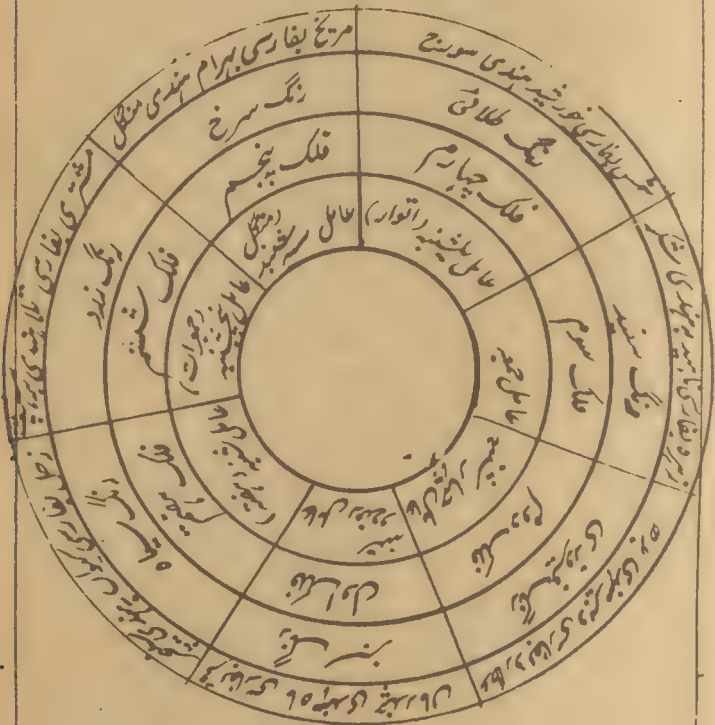 شمس بفارسی خورشید ہندی سورج
رنگ طلائی
فلک چہارم
عامل یکشنبہ (اتوار)
مریخ بفارسی بہرام ہندی منگل
رنگ سرخ
فلک پنجم
عامل سہ شنبہ (منگل)
مشتری بفارسی ہندی برہسپت
رنگ زرد
فلک ششم
عامل پنجشنبہ (جمعرات)
زحل بفارسی کیوان ہندی سنیچر
رنگ سیاہ
فلک ہفتم
قمر بفارسی ماہ ہندی چندرماں
رنگ سبز
فلک اول
عامل دوشنبہ
عطارد بفارسی دبیر ہندی بدھ
رنگ فیروزی
فلک دوم
عامل چہار شنبہ
زہرہ بفارسی ناہید ہندی شکر
رنگ سفید
فلک سوم
عامل جمعہ